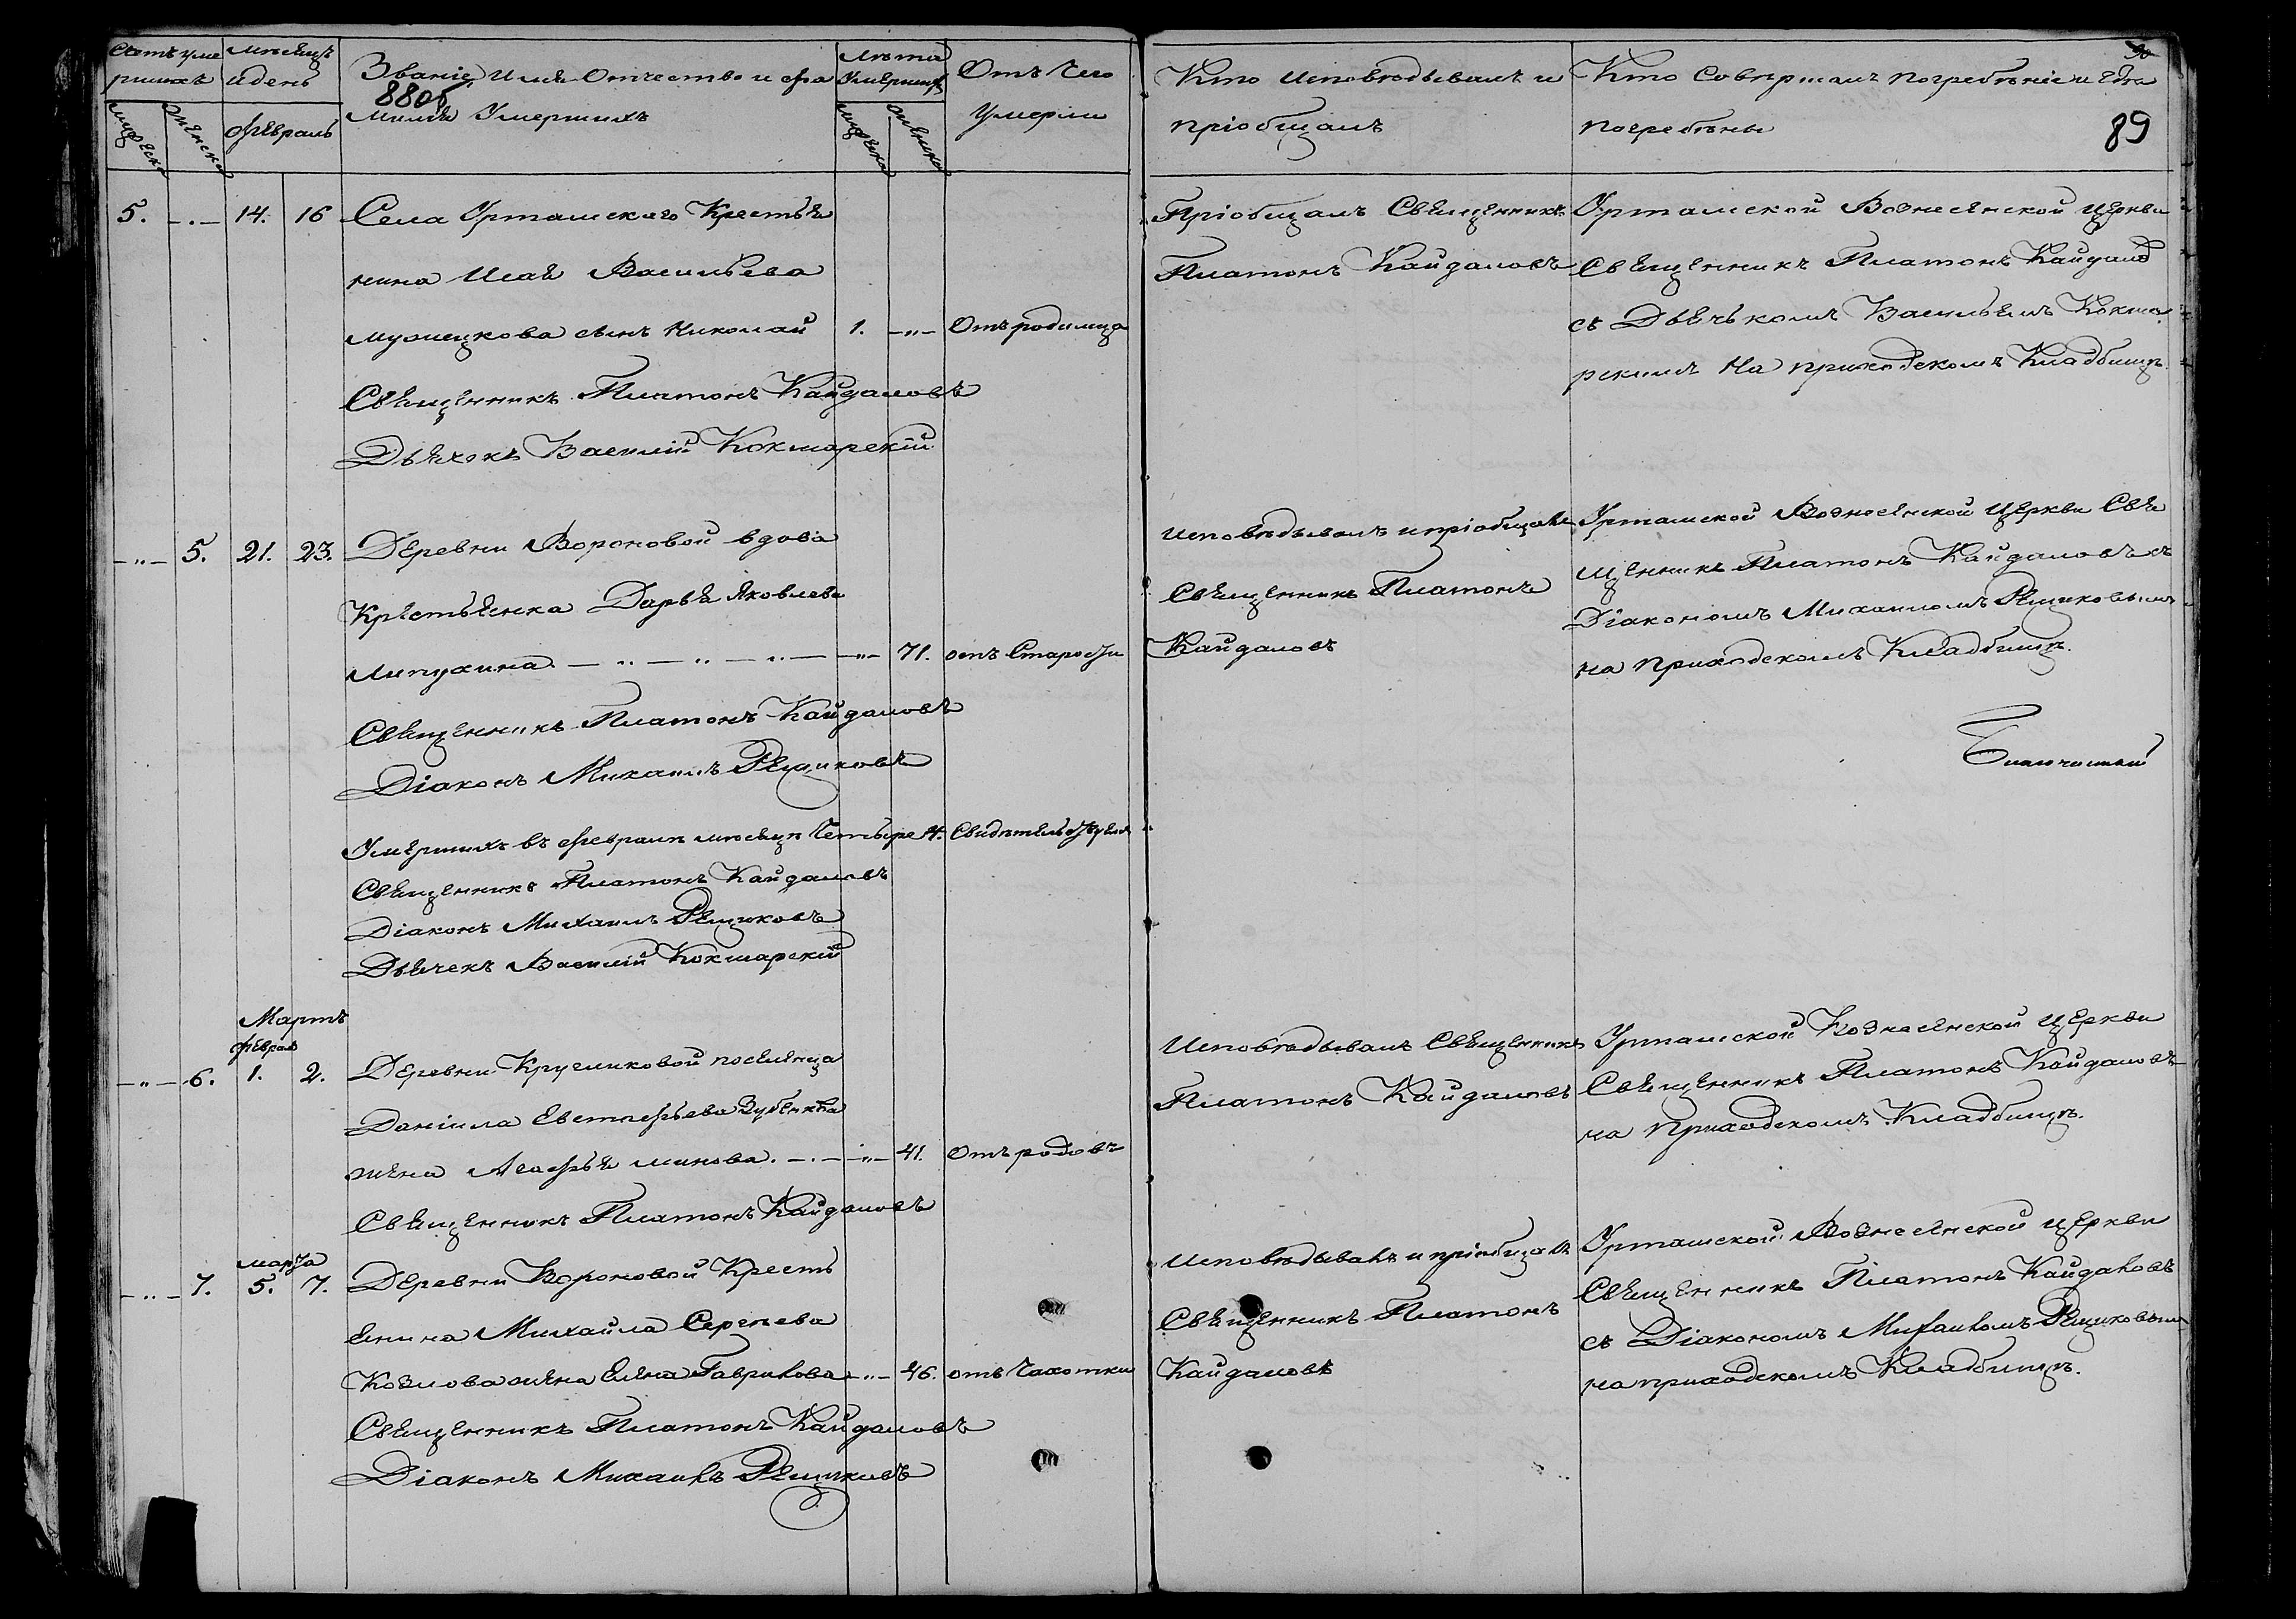 Счетъ уме
ршихъ
Мѣсяцъ
и день
Званіе, Имя Отчество и фа
880б
милія Умершихъ
Лѣта
Умершихъ
Отъ Чего
Умерли
Кто Исповѣдывалъ и
пріобщалъ
Кто Совершалъ погребѣніе и гдѣ
погребѣны
90
89
мужеска
женска
Февраль
мужеска
женска
5. -.- 14. 16 Села Урташскаго Крестья
нина Исая Васильева
сынъ Николай 1. -"- Отъ родимца
Священникъ Платонъ Кайдаловъ
Дьячекъ Василій Кокшарскій
Пріобщалъ Священникъ
Платонъ Кайдаловъ
Урташской Вознесенской церкви
Священникъ Платонъ Кайдалов
съ Дьячькомъ Васильемъ Кокша
рскимъ На приходскомъ Кладбищѣ.
-"- 5. 21. 23. Деревни Вороновой вдова
Крестьянка Дарья Яковлева
Липухина. -"-"-"- -"- 71. отъ Старости
Священникъ Платонъ Кайдаловъ
Діаконъ Михаилъ Рещиковъ
Исповѣдывалъ и пріобщалъ
Священникъ Платонъ
Кайдаловъ
Урташской Вознесенской Церкви Свя
щенникъ Платонъ Кайдаловъ съ
Діакономъ Михаиломъ Рещиковымъ
на Приходскомъ Кладбищѣ.
Благочинный
Умершихъ въ февралѣ мѣсяцѣ Четыре 4. Свидѣтельствуемъ
Священникъ Платонъ Кайдаловъ
Діаконъ Михаилъ Рещиковъ
Дьячекъ Василій Кокшарскій
Мартъ
Феврал
-"- 6. 1. 2. Деревни Кругликовой поселенца
Даніила Евстафьева
жена Агафья -.- -"- 41. Отъ родовъ
Священникъ Платонъ Кайдаловъ
Исповѣдывалъ Священникъ
Платонъ Кайдаловъ
Урташской Вознесенской церкви
Священникъ Платонъ Кайдаловъ
на Приходскомъ Кладбищѣ.
марта
-"- 7. 5. 7. Деревни Вороновой Кресть
янина Михайла Сергѣева
Козлова жена Елена Гаврилова -"- 46. отъ Чахотки
Священникъ Платонъ Кайдаловъ
Діаконъ Михаилъ Рещиковъ
Исповѣдывалъ и пріобщалъ
Священникъ Платонъ
Кайдаловъ
Урташской Вознесенской церкви
Священникъ Платонъ Кайдаловъ
съ Діакономъ Михаиломъ Рещиковым
на приходскомъ Кладбищѣ.